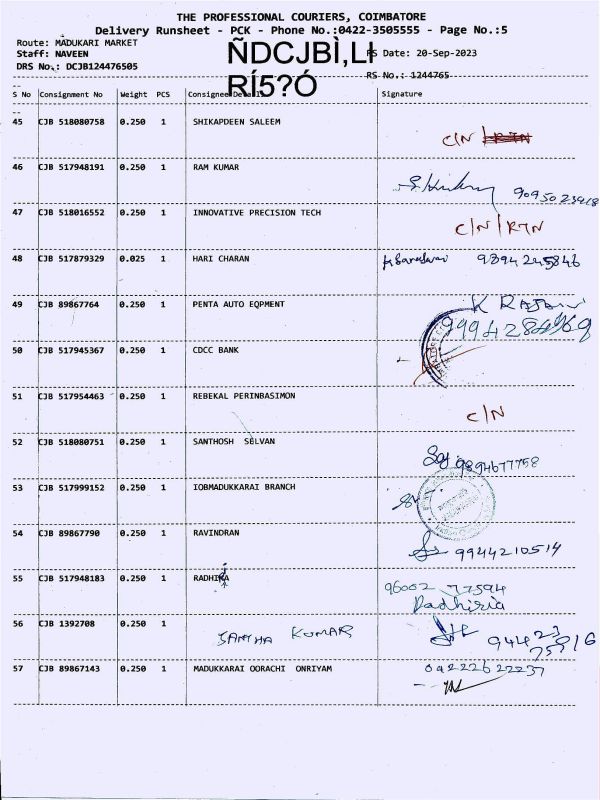 THE PROFESSIONAL COURIERS, COIMBATORE
Delivery Runsheet - PCK - Phone No.:0422-3505555 - Page No.:5
Route: MADUKARI MARKET
Staff: NAVEEN RS Date: 20-Sep-2023
DRS No.: DCJB124476505 RS No.: 1244765
ÑDCJBÌ,LI
RÍ5?Ó
S No Consignment No Weight PCS Consignee Details Signature
45 CJB 518080758 0.250 1 SHIKAPDEEN SALEEM C/N
46 CJB 517948191 0.250 1 RAM KUMAR
47 CJB 518016552 0.250 1 INNOVATIVE PRECISION TECH C/N/RTN
48 CJB 517879329 0.025 1 HARI CHARAN 9894245846
49 CJB 89867764 0.250 1 PENTA AUTO EQPMENT
50 CJB 517945367 0.250 1 CDCC BANK
51 CJB 517954463 0.250 1 REBEKAL PERINBASIMON C/N
52 CJB 518080751 0.250 1 SANTHOSH SELVAN 9894677758
53 CJB 517999152 0.250 1 IOBMADUKKARAI BRANCH
54 CJB 89867790 0.250 1 RAVINDRAN 9944210514
55 CJB 517948183 0.250 1 RADHIKA 96002 77594
56 CJB 1392708 0.250 1 KUMAR
57 CJB 89867143 0.250 1 MADUKKARAI OORACHI ONRIYAM 04222622237